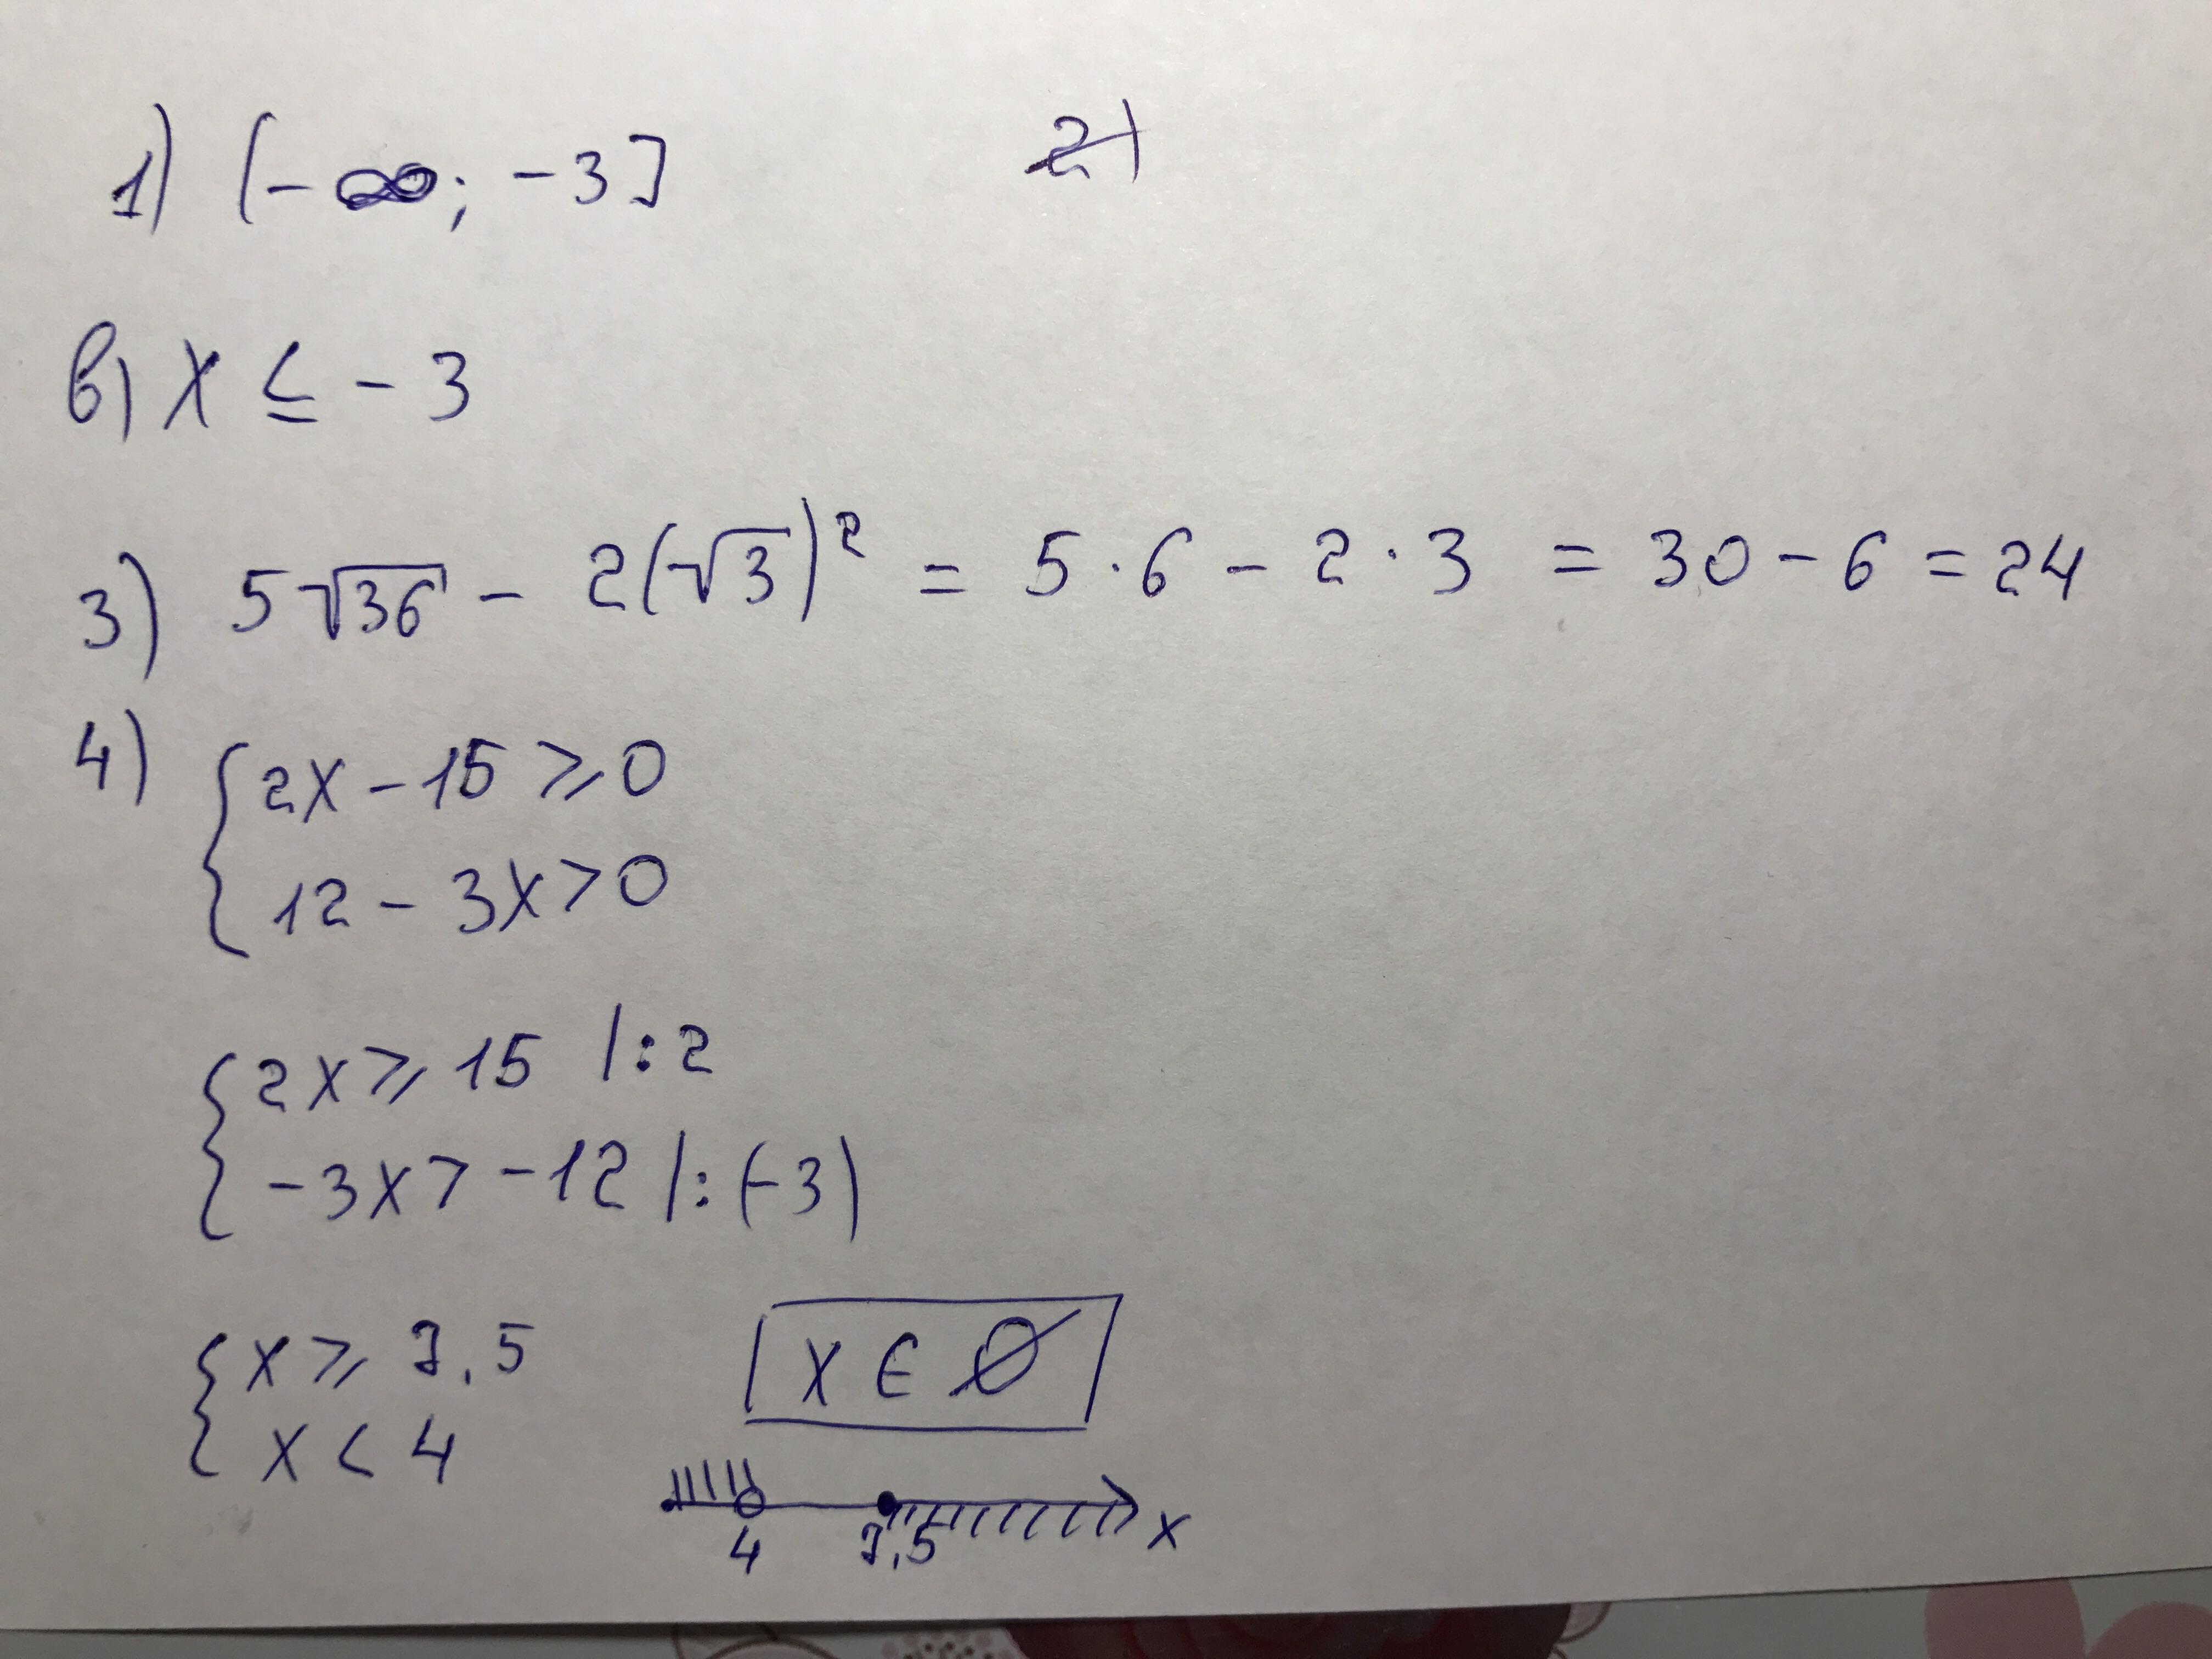 1) (-∞; -3]
2)
в) x ≤ -3
3) 5√36 - 2(√3)² = 5·6 - 2·3 = 30 - 6 = 24
4) { 2x - 15 ≥ 0
12 - 3x > 0
{ 2x ≥ 15 |:2
-3x > -12 |:(-3)
{ x ≥ 7,5
x < 4
x ∈ ∅
4 7,5 x